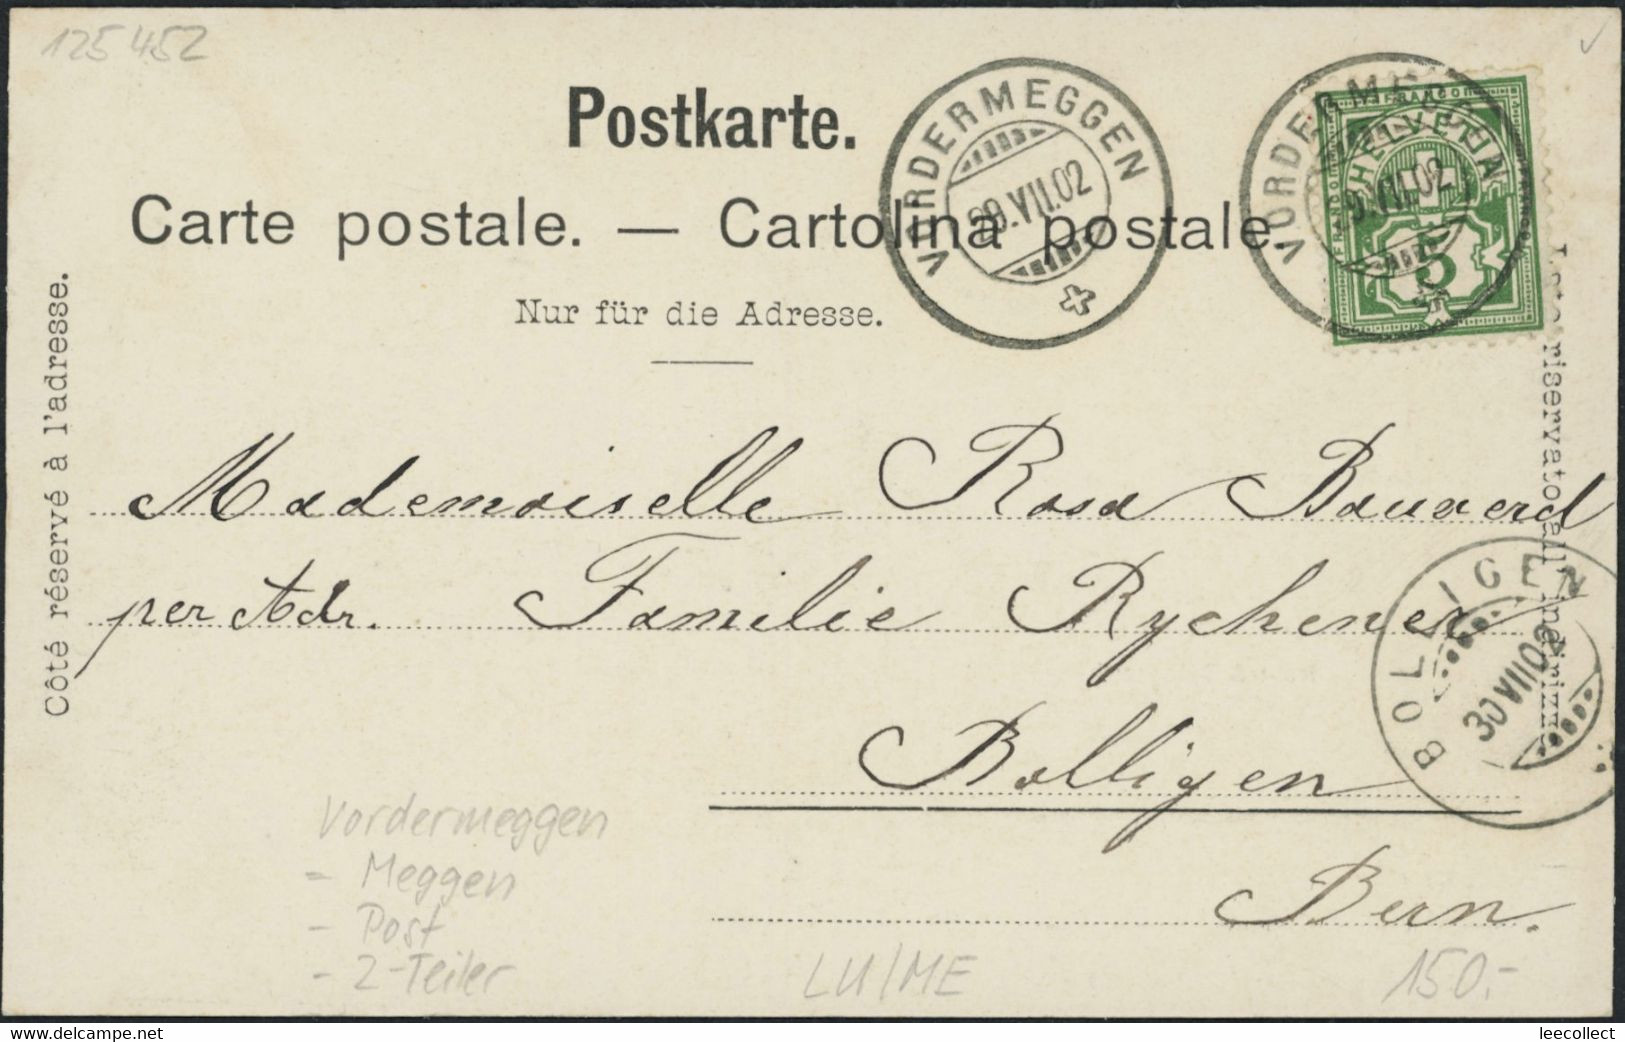 125452
Postkarte.
Carte postale. — Cartolina postale.
Nur für die Adresse.
Côté réservé à l'adresse.
riservato all' indirizzo
VORDERMEGGEN
29.VII.02
VORDERMEGGEN
9.VII.02
FRANCO
HELVETIA
5
Mademoiselle Rosa Bauverd
per Adr. Familie Rychener
Bolligen
Bern.
BOLLIGEN
30 VII 02
Vordermeggen
- Meggen
- Post
- 2-Teiler
LU/ME
150.-
https://www.delcampe.net
leecollect